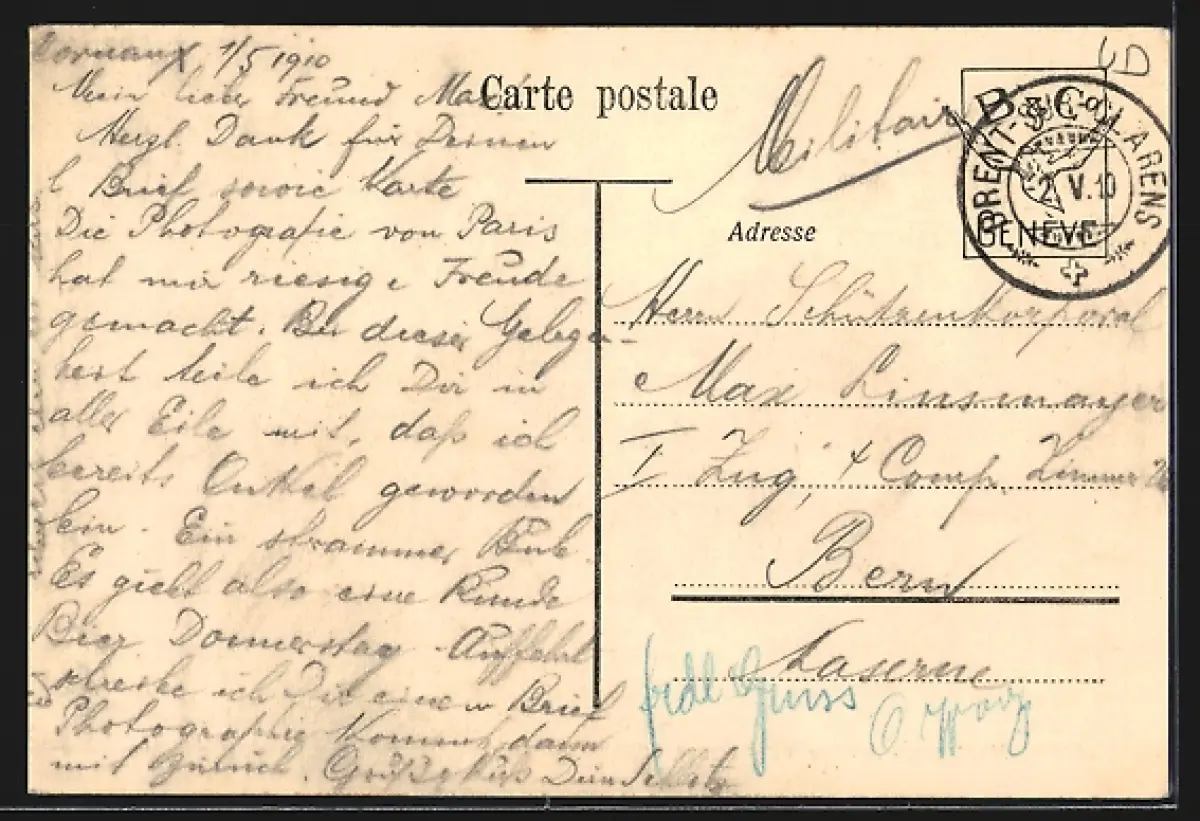 1/5 1910
Mein lieber Freund Max
Herzl. Dank für Deinen
l. Brief sowie Karte
Die Photografie von Paris
hat mir riesige Freude
gemacht. Bei dieser Gelegen-
heit teile ich Dir in
aller Eile mit, daß ich
bereits Onkel geworden
bin. Ein strammer Bub
Es giebt also eine Runde
Bier Donnerstag Auffahrt
schreibe ich Dir einen Brief
Photographie kommt dann
mit zurück. Gruß & Kuß Dein
Carte postale
Militair
B. & Co.
GENÈVE
BRENT-SUR-CLARENS
2. V. 10
Adresse
Herrn Schützenkorporal
Max Linsmayer
I Zug, 4 Comp. Zimmer
Bern
Kaserne
frdl Gruss